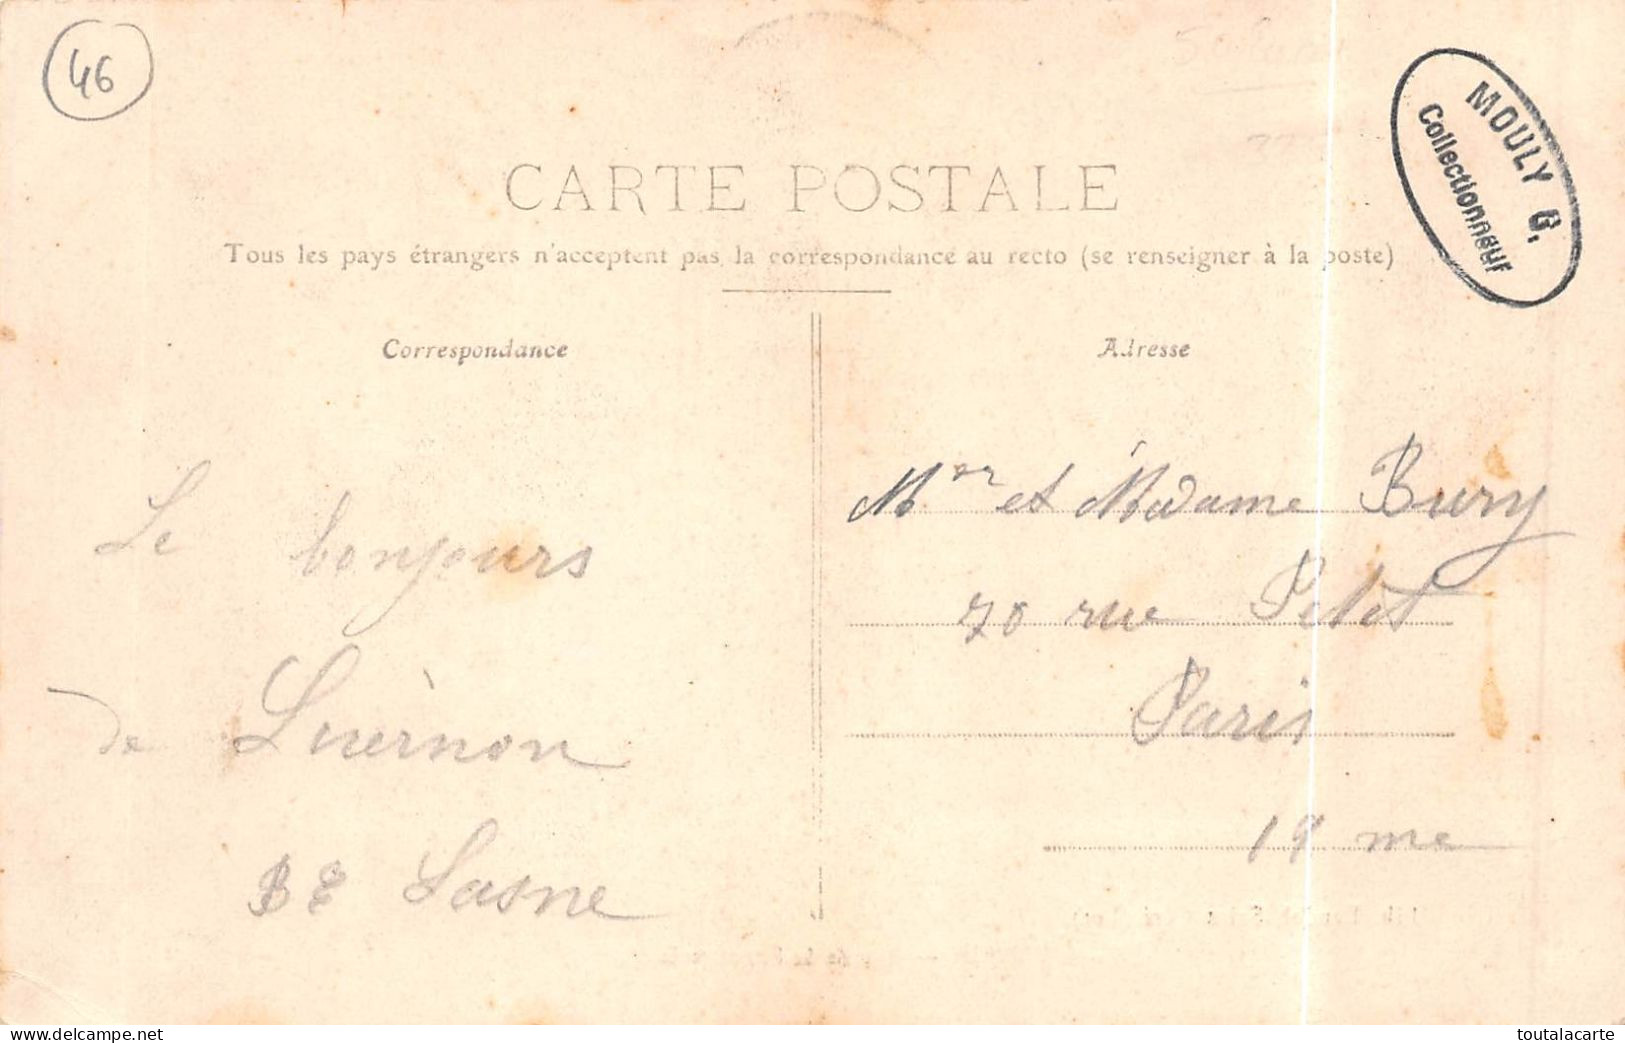 46
MOULY G.
Collectionneur
CARTE POSTALE
Tous les pays étrangers n'acceptent pas la correspondance au recto (se renseigner à la poste)
Correspondance
Adresse
Le bonjours
de Luernon
Mr et Madame Bury
70 rue Petit
Paris
19 me
delcampe.net
toutalacarte